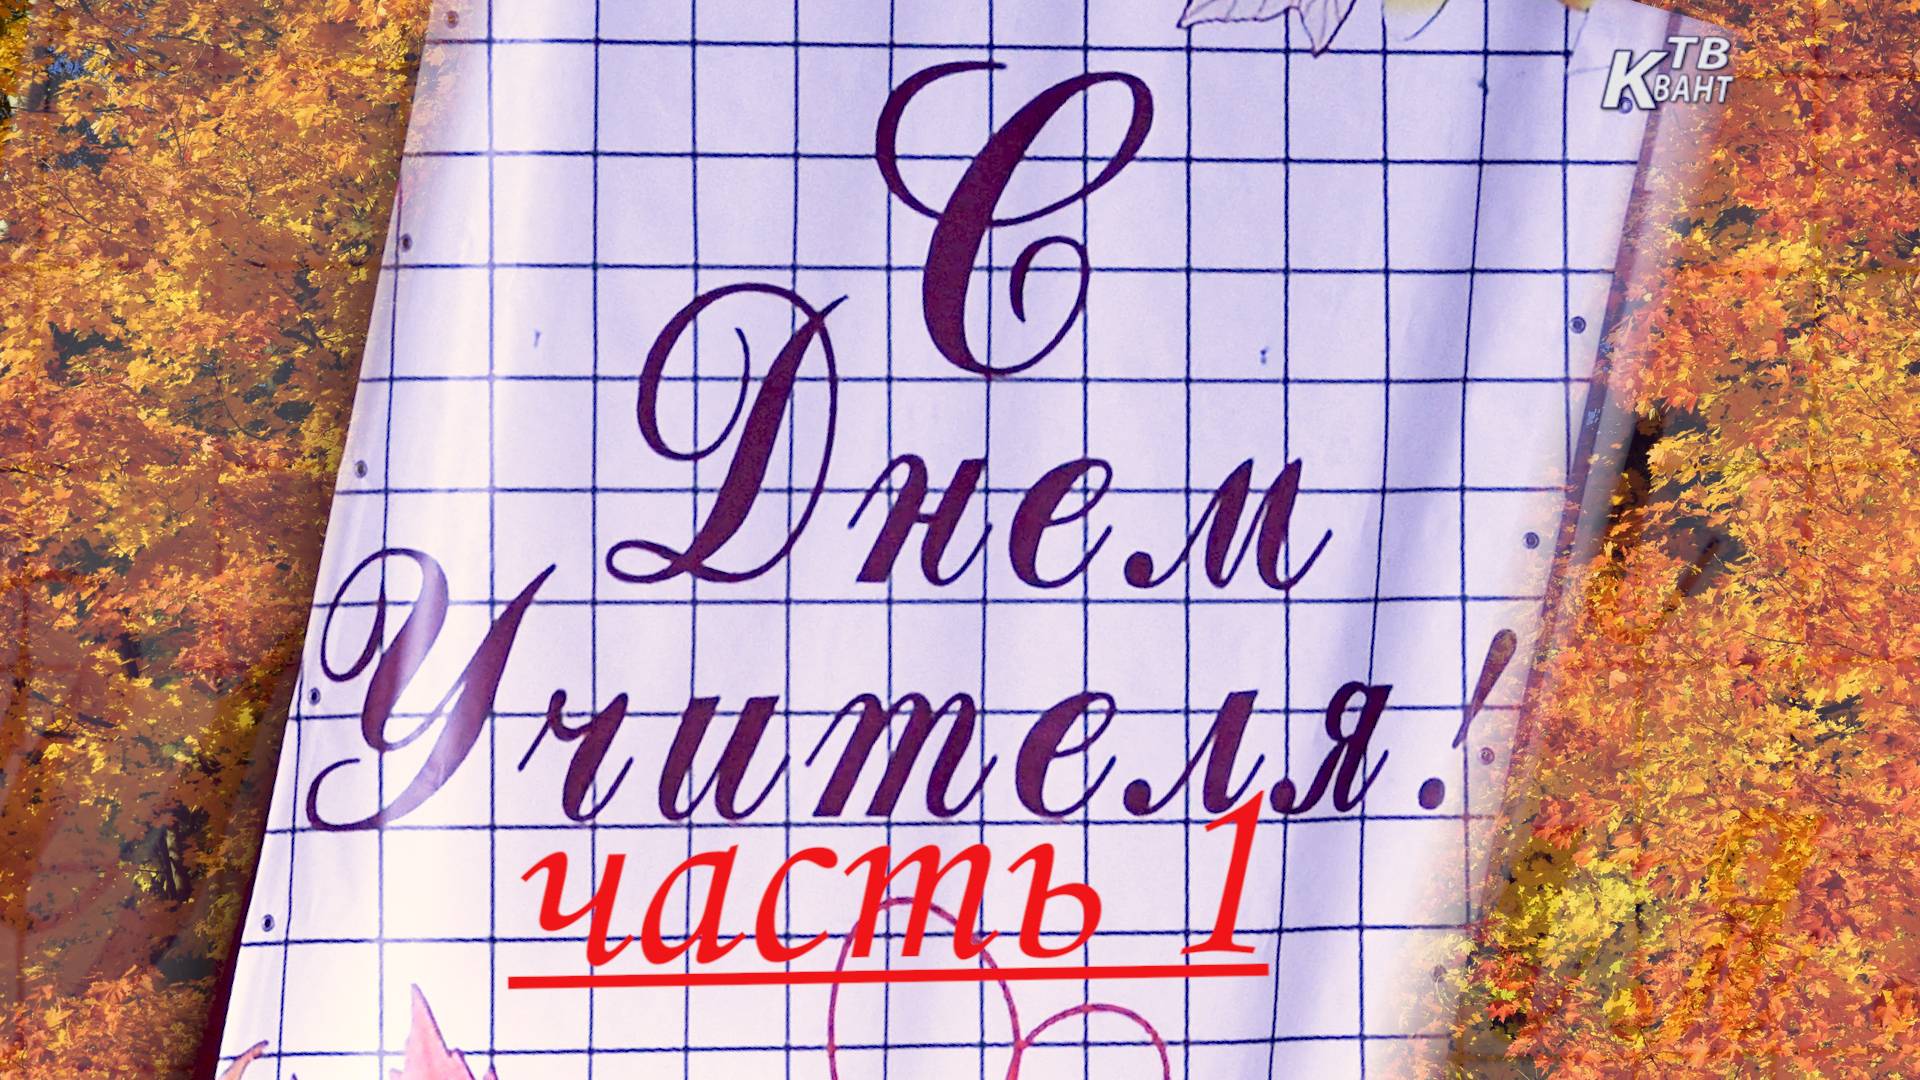 ТВ
КВАНТ
С
Днем
Учителя!
часть 1